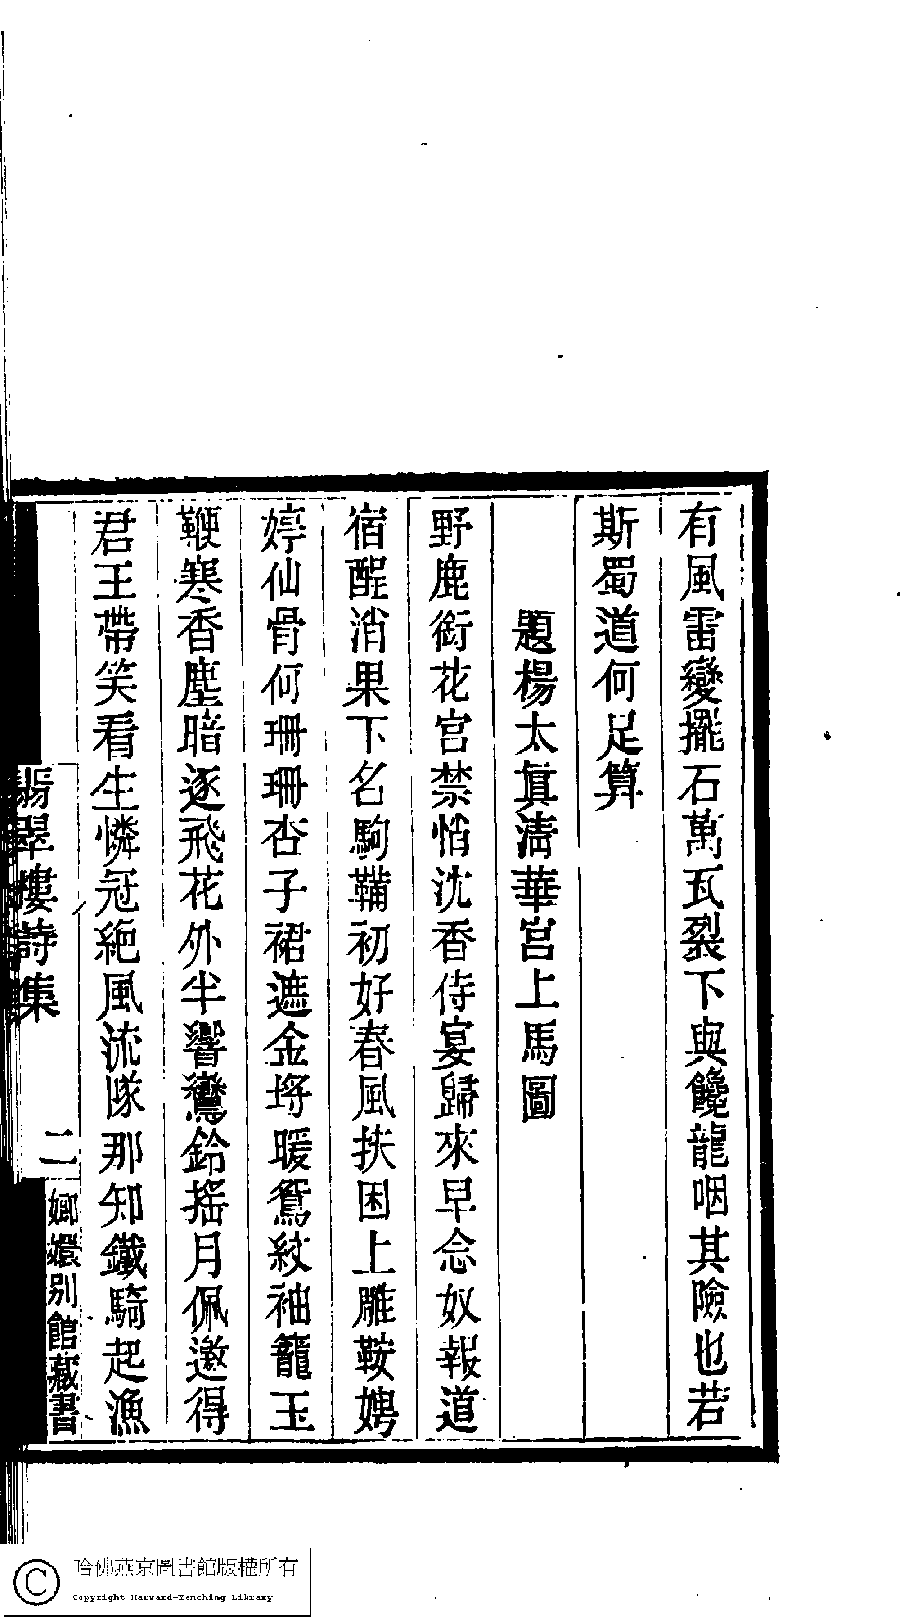 有風雷變擺石萬瓦裂下與饞龍咽其險也若
斯蜀道何足算
題楊太眞淸華宮上馬圖
野鹿銜花宮禁悄沈香侍宴歸來早念奴報道
宿酲消果下名駒鞴初好春風扶困上雕鞍娉
婷仙骨何珊珊杏子裙遮金埒暖鴛紋袖籠玉
鞭寒香塵暗逐飛花外半響鸞鈴搖月佩邀得
君王帶笑看生憐冠絕風流隊那知鐵騎起漁
翡翠樓詩集
二
嫏嬛别館藏書
哈佛燕京圖書館版權所有
Copyright Harvard-Yenching Library